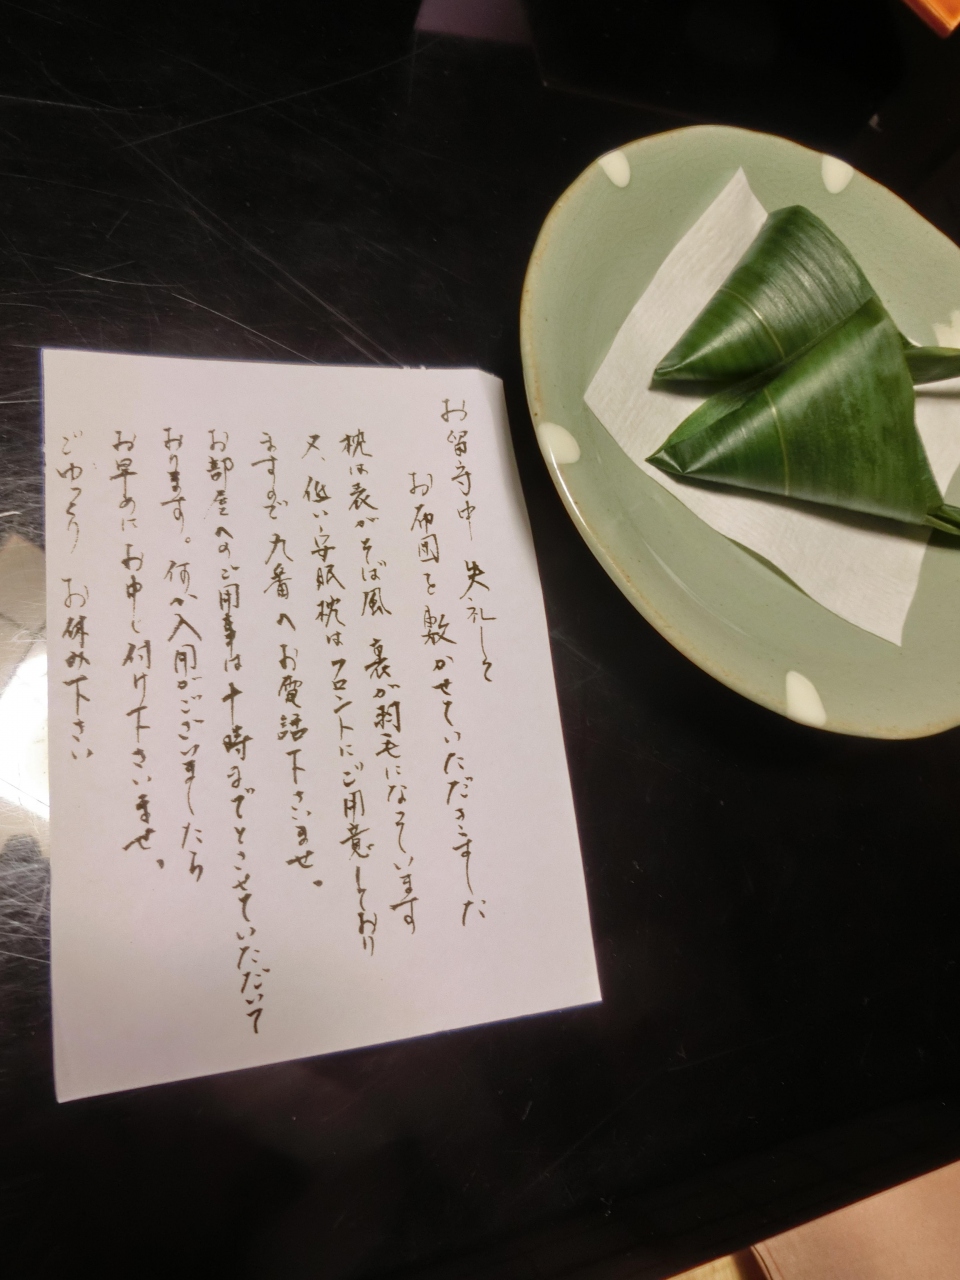 お留守中 失礼して
お布団を敷かせていただきました
枕は表がそば風 裏が羽毛になっています
又、低い安眠枕はフロントにご用意しており
ますので九番へお電話下さいませ。
お部屋へのご用事は十時までとさせていただいて
おります。何か入用がございましたら
お早めにお申し付け下さいませ。
ごゆっくり お休み下さい